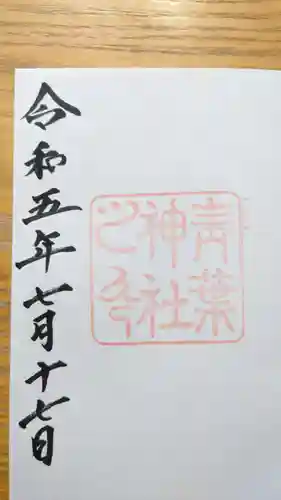 青葉
神社
之印
令和五年七月十七日